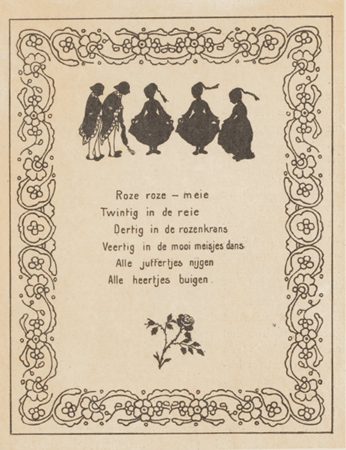 Roze roze – meie
Twintig in de reie
Dertig in de rozenkrans
Veertig in de mooi meisjes dans
Alle juffertjes nijgen
Alle heertjes buigen.